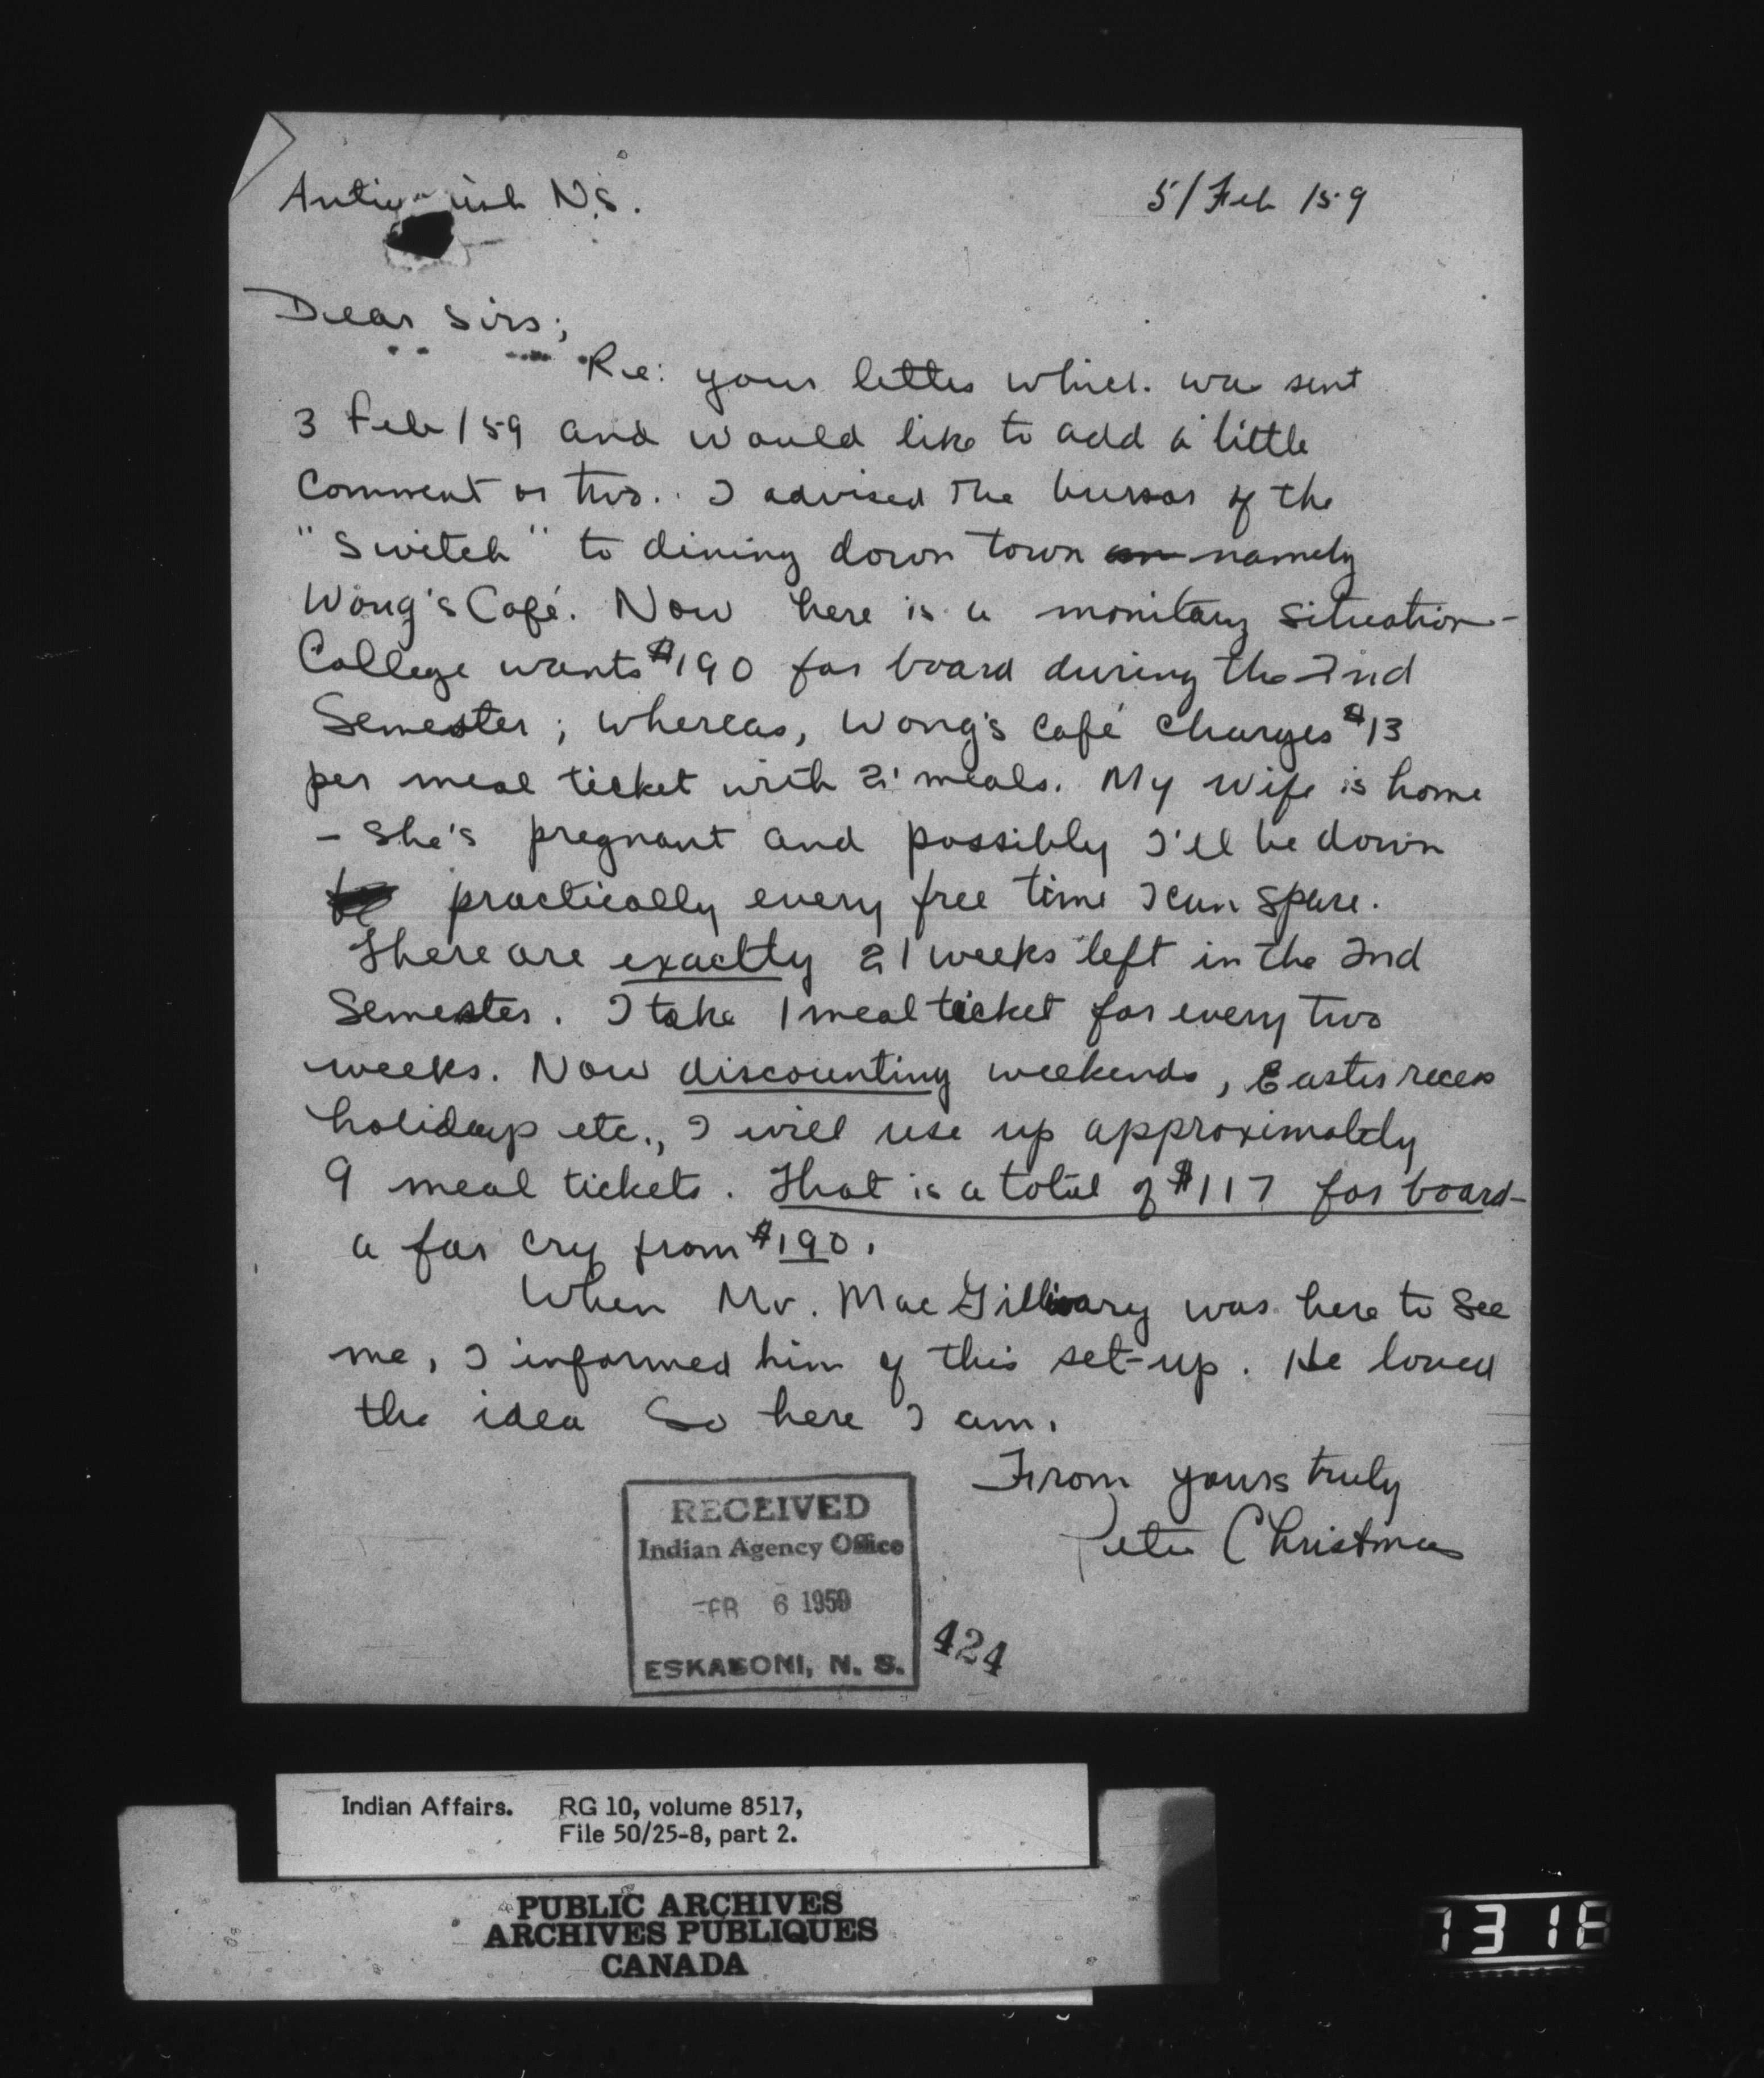 Antigonish N.S. 5/Feb/59
Dear Sirs;
Re: your letter which was sent
3 Feb/59 and would like to add a little
comment or two. I advised the bursar of the
"Switch" to dining down town namely
Wong's Café. Now here is a monitary situation-
College wants $190 for board during the 2nd
Semester; whereas, Wong's Café charges $13
per meal ticket with 21 meals. My wife is home
- she's pregnant and possibly I'll be down
practically every free time I can spare.
There are exactly 21 weeks left in the 2nd
Semester. I take 1 meal ticket for every two
weeks. Now discounting weekends, Easter recess
holidays etc., I will use up approximately
9 meal tickets. That is a total of $117 for board-
a far cry from $190.
When Mr. MacGillivary was here to see
me, I informed him of this set-up. He loved
the idea So here I am.
From yours truly
Peter Christmas
RECEIVED
Indian Agency Office
FEB 6 1959
ESKASONI, N. S.
424
Indian Affairs. RG 10, volume 8517,
File 50/25-8, part 2.
PUBLIC ARCHIVES
ARCHIVES PUBLIQUES
CANADA